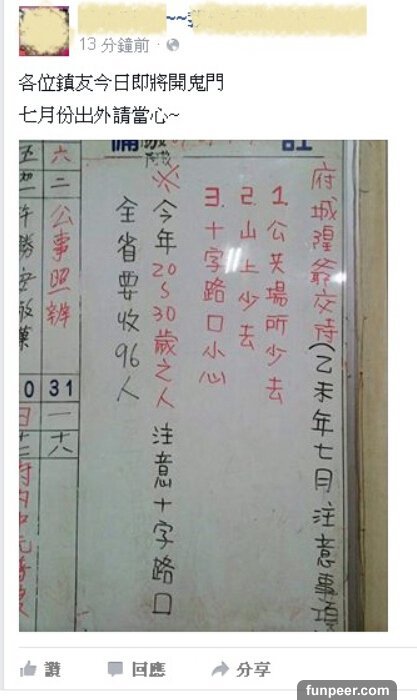 13 分鐘前
各位鎮友今日即將開鬼門
七月份出外請當心~
備
註
府城隍爺交待(乙未年七月注意事項
1. 公共場所少去
2. 山上少去
3. 十字路口小心
※今年20S30歲之人 注意十字路口
全省要收96人
六
二
公事照辦
31
一
十六
五
0
讚
回應
分享
funpeer.com